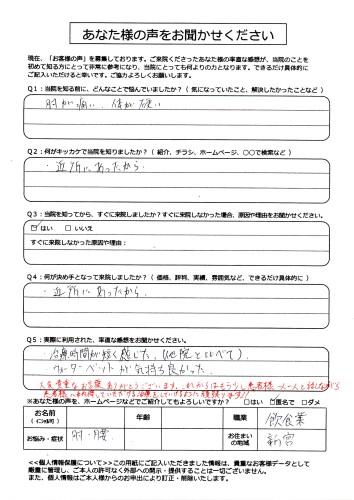 あなた様の声をお聞かせください
現在、「お客様の声」を募集しております。ご来院くださったあなた様の率直な感想が、当院のことを
初めて知る方にとって非常に参考になり、当院にとっても何よりの力となります。できるだけ具体的に
ご記入いただけると幸いです。ご協力よろしくお願いします。
Q1：当院を知る前に、どんなことで悩んでいましたか？（ 気になっていたこと、解決したかったことなど ）
肘が痛い、体が硬い
Q2：何がキッカケで当院を知りましたか？（ 紹介、チラシ、ホームページ、○○で検索など ）
・近所にあったから
Q3：当院を知ってから、すぐに来院しましたか？すぐに来院しなかった場合、原因や理由をお聞かせください。
☑ はい □ いいえ
すぐに来院しなかった原因や理由：
Q4：何が決め手となって来院しましたか？（ 価格、評判、実績、雰囲気など、できるだけ具体的に ）
・近所にあったから
Q5：実際に利用された、率直な感想をお聞かせください。
・治療時間が短く感じた。(他院と比べて)
ウォーターベットが気持ち良かった。
貴重なお言葉ありがとうございます。これからはもう少し患者様一人一人と
※あなた様の声を、ホームページなどでご紹介してもよろしいですか？ □はい ☑匿名で □ダメ
お名前
(イニシャル可)
年齢
職業
飲食業
お悩み・症状
肘・腰
お住まい
の地域
新宮
<<個人情報保護について>>この用紙にご記入いただきました情報は、貴重なお客様データとして
厳重に管理し、ご本人の許可なく外部への開示・提供することは一切ございません。
また、個人情報はご本人様からのお申出により訂正・削除いたします。